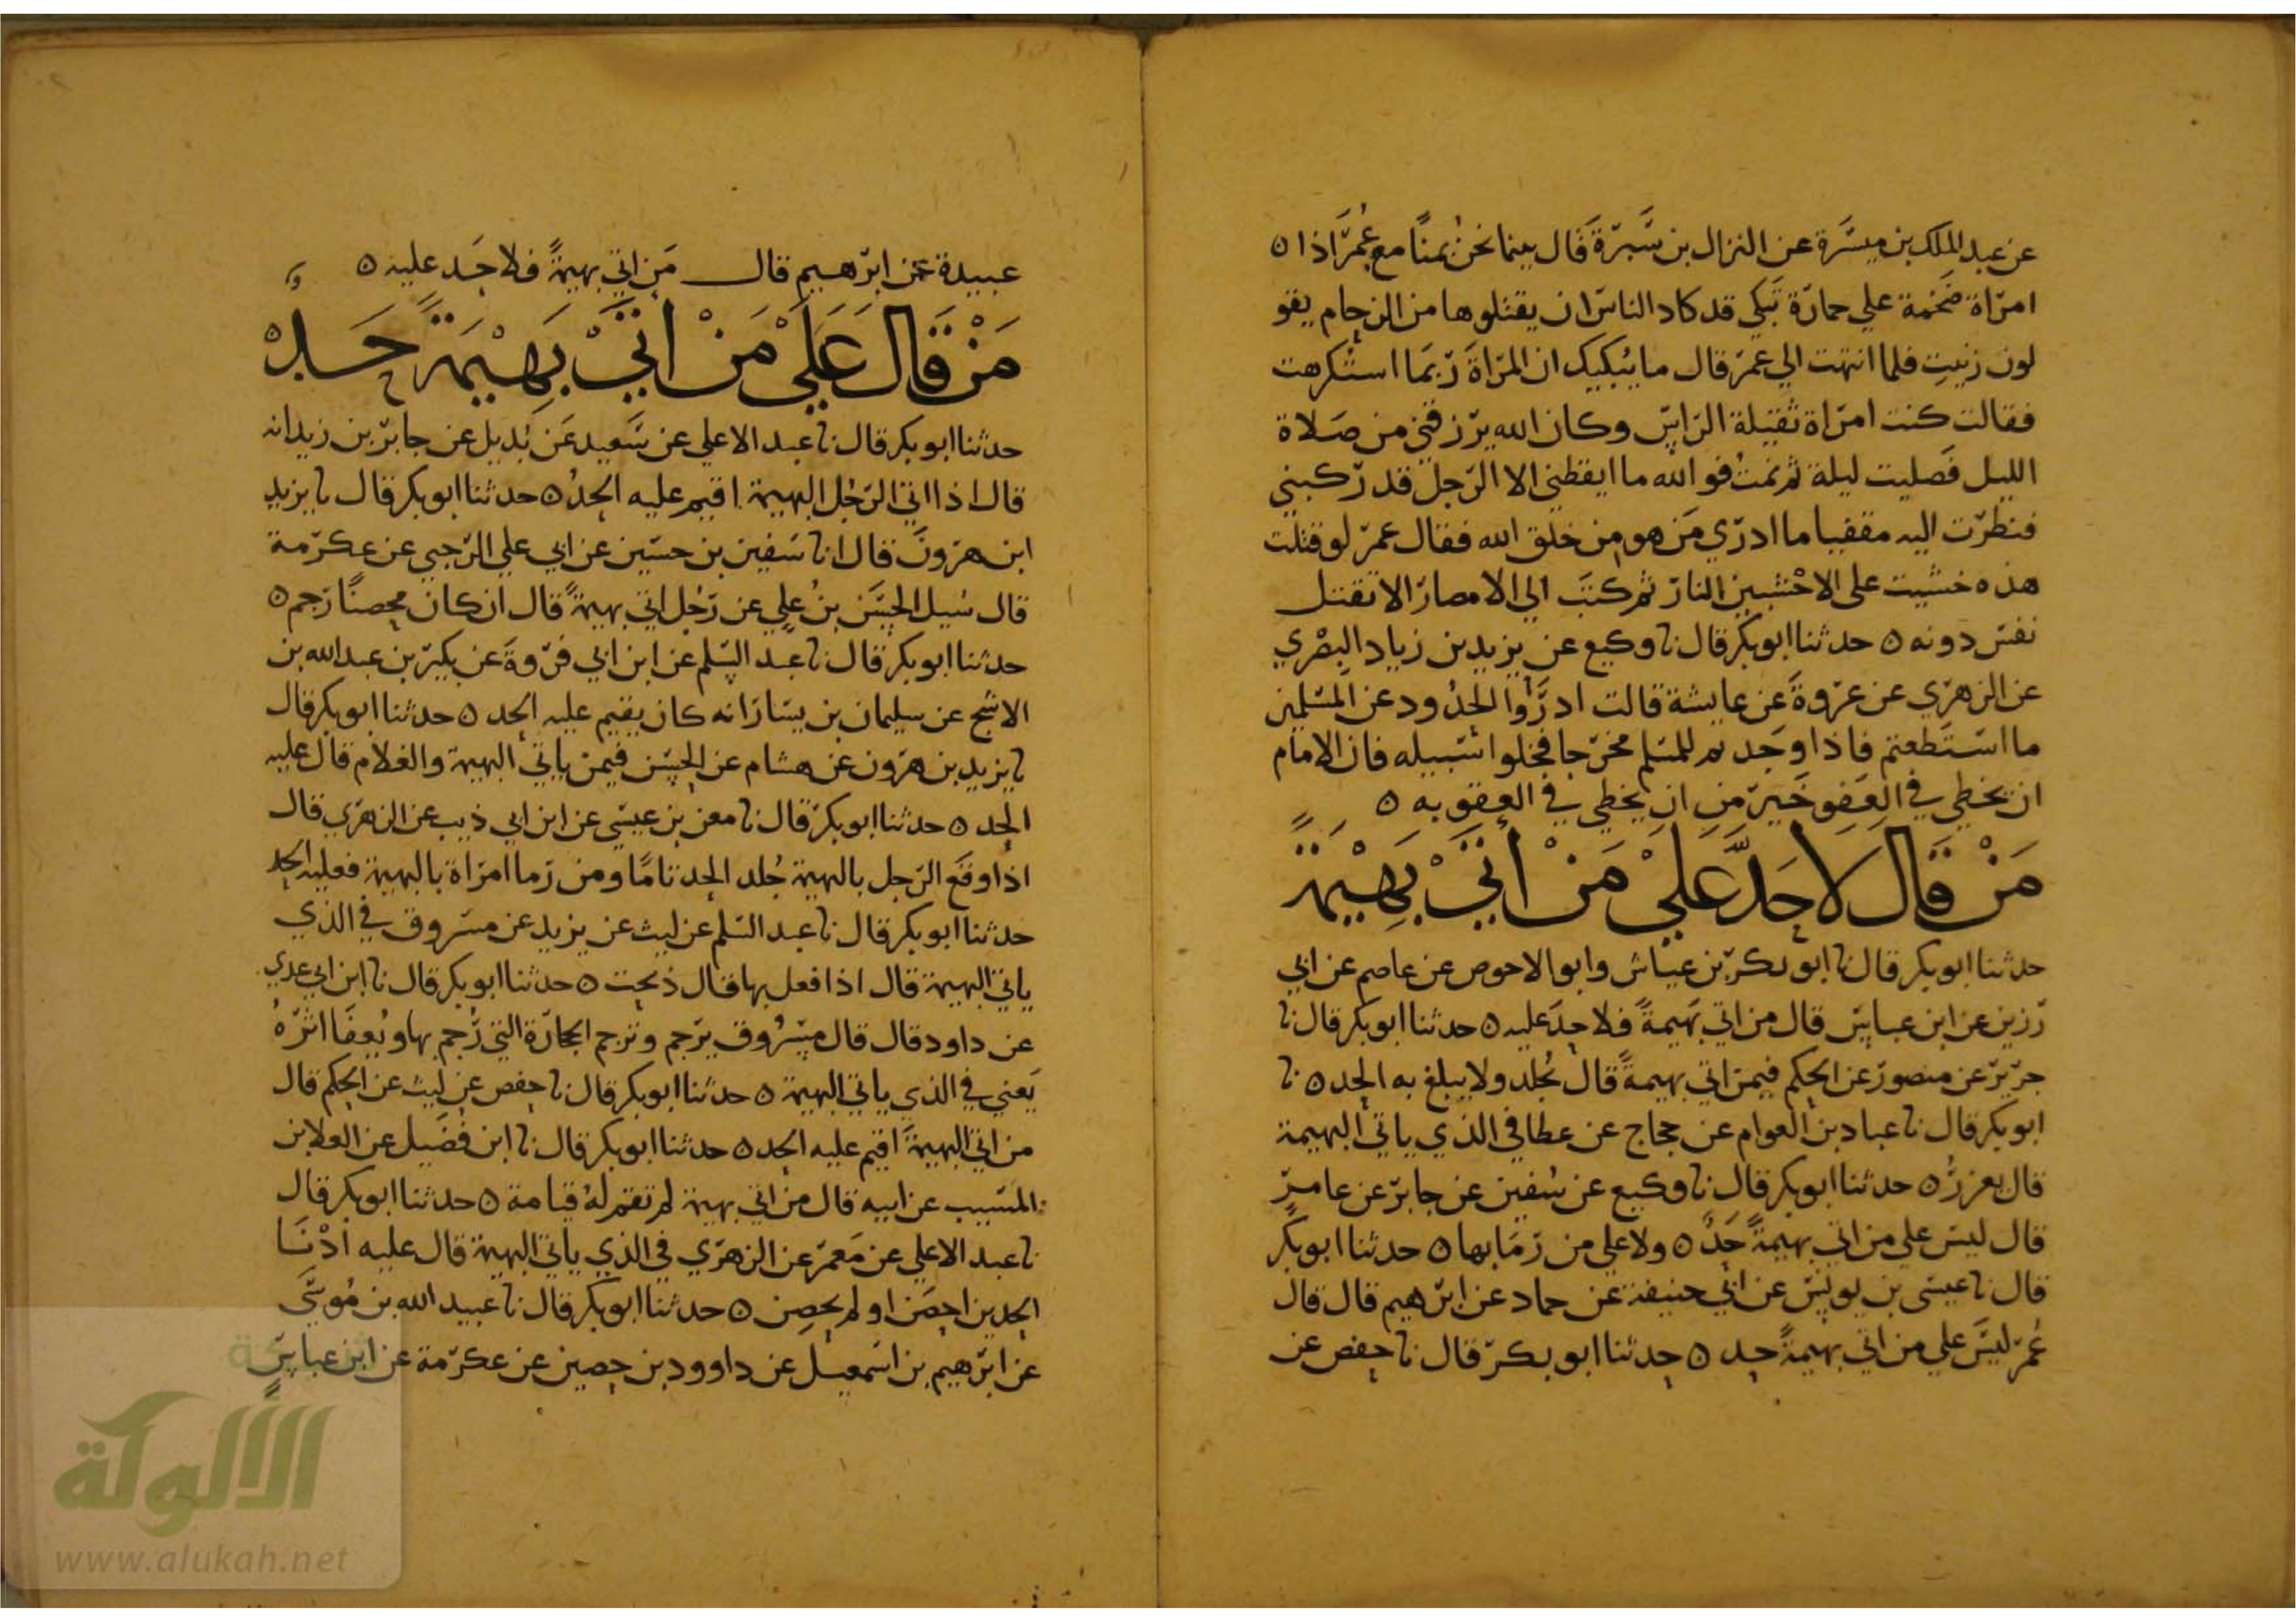 عن عبد الملك بن ميسرة عن النزال بن سبرة قال بينما نحن بمنا مع عمر اذا ه
امراة ضخمة علي حمارة تبكي قد كاد الناس ان يقتلوها من الزحام يقو
لون زنيت فلما انتهت الي عمر قال ما يبكيك ان المراة ربما استكرهت
فقالت كنت امراة ثقيلة الراس وكان الله يرزقني من صلاة
الليل فصليت ليلة ثم نمت فوالله ما ايقظني الا الرجل قد ركبني
فنظرت اليه مقفيا ما ادري من هو من خلق الله فقال عمر لو قتلت
هذه خشيت على الاخشبين النار ثم كتب الي الامصار الا تقتل
نفس دونه ه حدثنا ابو بكر قال نا وكيع عن يزيد بن زياد البصري
عن الزهري عن عروة عن عايشة قالت ادرؤا الحدود عن المسلمين
ما استطعتم فاذا وجدتم للمسلم مخرجا فخلوا سبيله فان الامام
ان يخطي في العفو خير من ان يخطي في العقوبه ه
مَنْ قَالَ لَا حَدَّ عَلَيْ مَنْ أَتَيْ بَهِيْمَةً
حدثنا ابو بكر قال نا ابو بكر بن عياش وابو الاحوص عن عاصم عن ابي
رزين عن ابن عباس قال من اتي بهيمة فلا حد عليه ه حدثنا ابو بكر قال نا
جرير عن منصور عن الحكم فيمن اتي بهيمة قال يجلد ولا يبلغ به الحد ه نا
ابو بكر قال نا عباد بن العوام عن حجاج عن عطا في الذي ياتي البهيمة
قال يعزر ه حدثنا ابو بكر قال نا وكيع عن سفين عن جابر عن عامر
قال ليس علي من اتي بهيمة حد ه ولا علي من رما بها ه حدثنا ابو بكر
قال نا عيسى بن يونس عن ابي حنيفة عن حماد عن ابرهيم قال قال
عمر ليس علي من اتي بهيمة حد ه حدثنا ابو بكر قال نا حفص عن
عبيدة عن ابرهيم قال من اتي بهيمة فلا حد عليه ه
مَنْ قَالَ عَلَيْ مَنْ اتَيْ بَهِيْمَةً حَدٌّ
حدثنا ابو بكر قال نا عبد الاعلي عن سعيد عن بديل عن جابر بن زيد انه
قال اذا اتي الرجل البهيمة اقيم عليه الحد ه حدثنا ابو بكر قال نا يزيد
ابن هرون قال انا سفين بن حسين عن ابي علي الرحبي عن عكرمة
قال سيل الحسن بن علي عن رجل اتي بهيمة قال ان كان محصنا رجم ه
حدثنا ابو بكر قال نا عبد السلم عن ابن ابي فروة عن بكير بن عبد الله بن
الاشج عن سليمان بن يسار انه كان يقيم عليه الحد ه حدثنا ابو بكر قال
نا يزيد بن هرون عن هشام عن الحسن فيمن ياتي البهيمة والغلام قال عليه
الحد ه حدثنا ابو بكر قال نا معن بن عيسى عن ابن ابي ذيب عن الزهري قال
اذا وقع الرجل بالبهيمة جلد الحد تاما ومن رما امراة بالبهيمة فعليه الحد
حدثنا ابو بكر قال نا عبد السلم عن ليث عن يزيد عن مسروق في الذي
ياتي البهيمة قال اذا فعل بها قال ذبحت ه حدثنا ابو بكر قال نا ابن ابي عدي
عن داود قال قال مسروق يرجم وترجم الحجارة التي رجم بها ويعفا اثره
يعني في الذي ياتي البهيمة ه حدثنا ابو بكر قال نا حفص عن ليث عن الحكم قال
من اتي البهيمة اقيم عليه الحد ه حدثنا ابو بكر قال نا ابن فضيل عن العلا بن
المسيب عن ابيه قال من اتي بهيمة لم تقم له قيامة ه حدثنا ابو بكر قال
نا عبد الاعلي عن معمر عن الزهري في الذي ياتي البهيمة قال عليه ادنا
الحدين احصن او لم يحصن ه حدثنا ابو بكر قال نا عبيد الله بن موسى
عن ابرهيم بن اسمعيل عن داوود بن حصين عن عكرمة عن ابن عباس
الألوكة
www.alukah.net